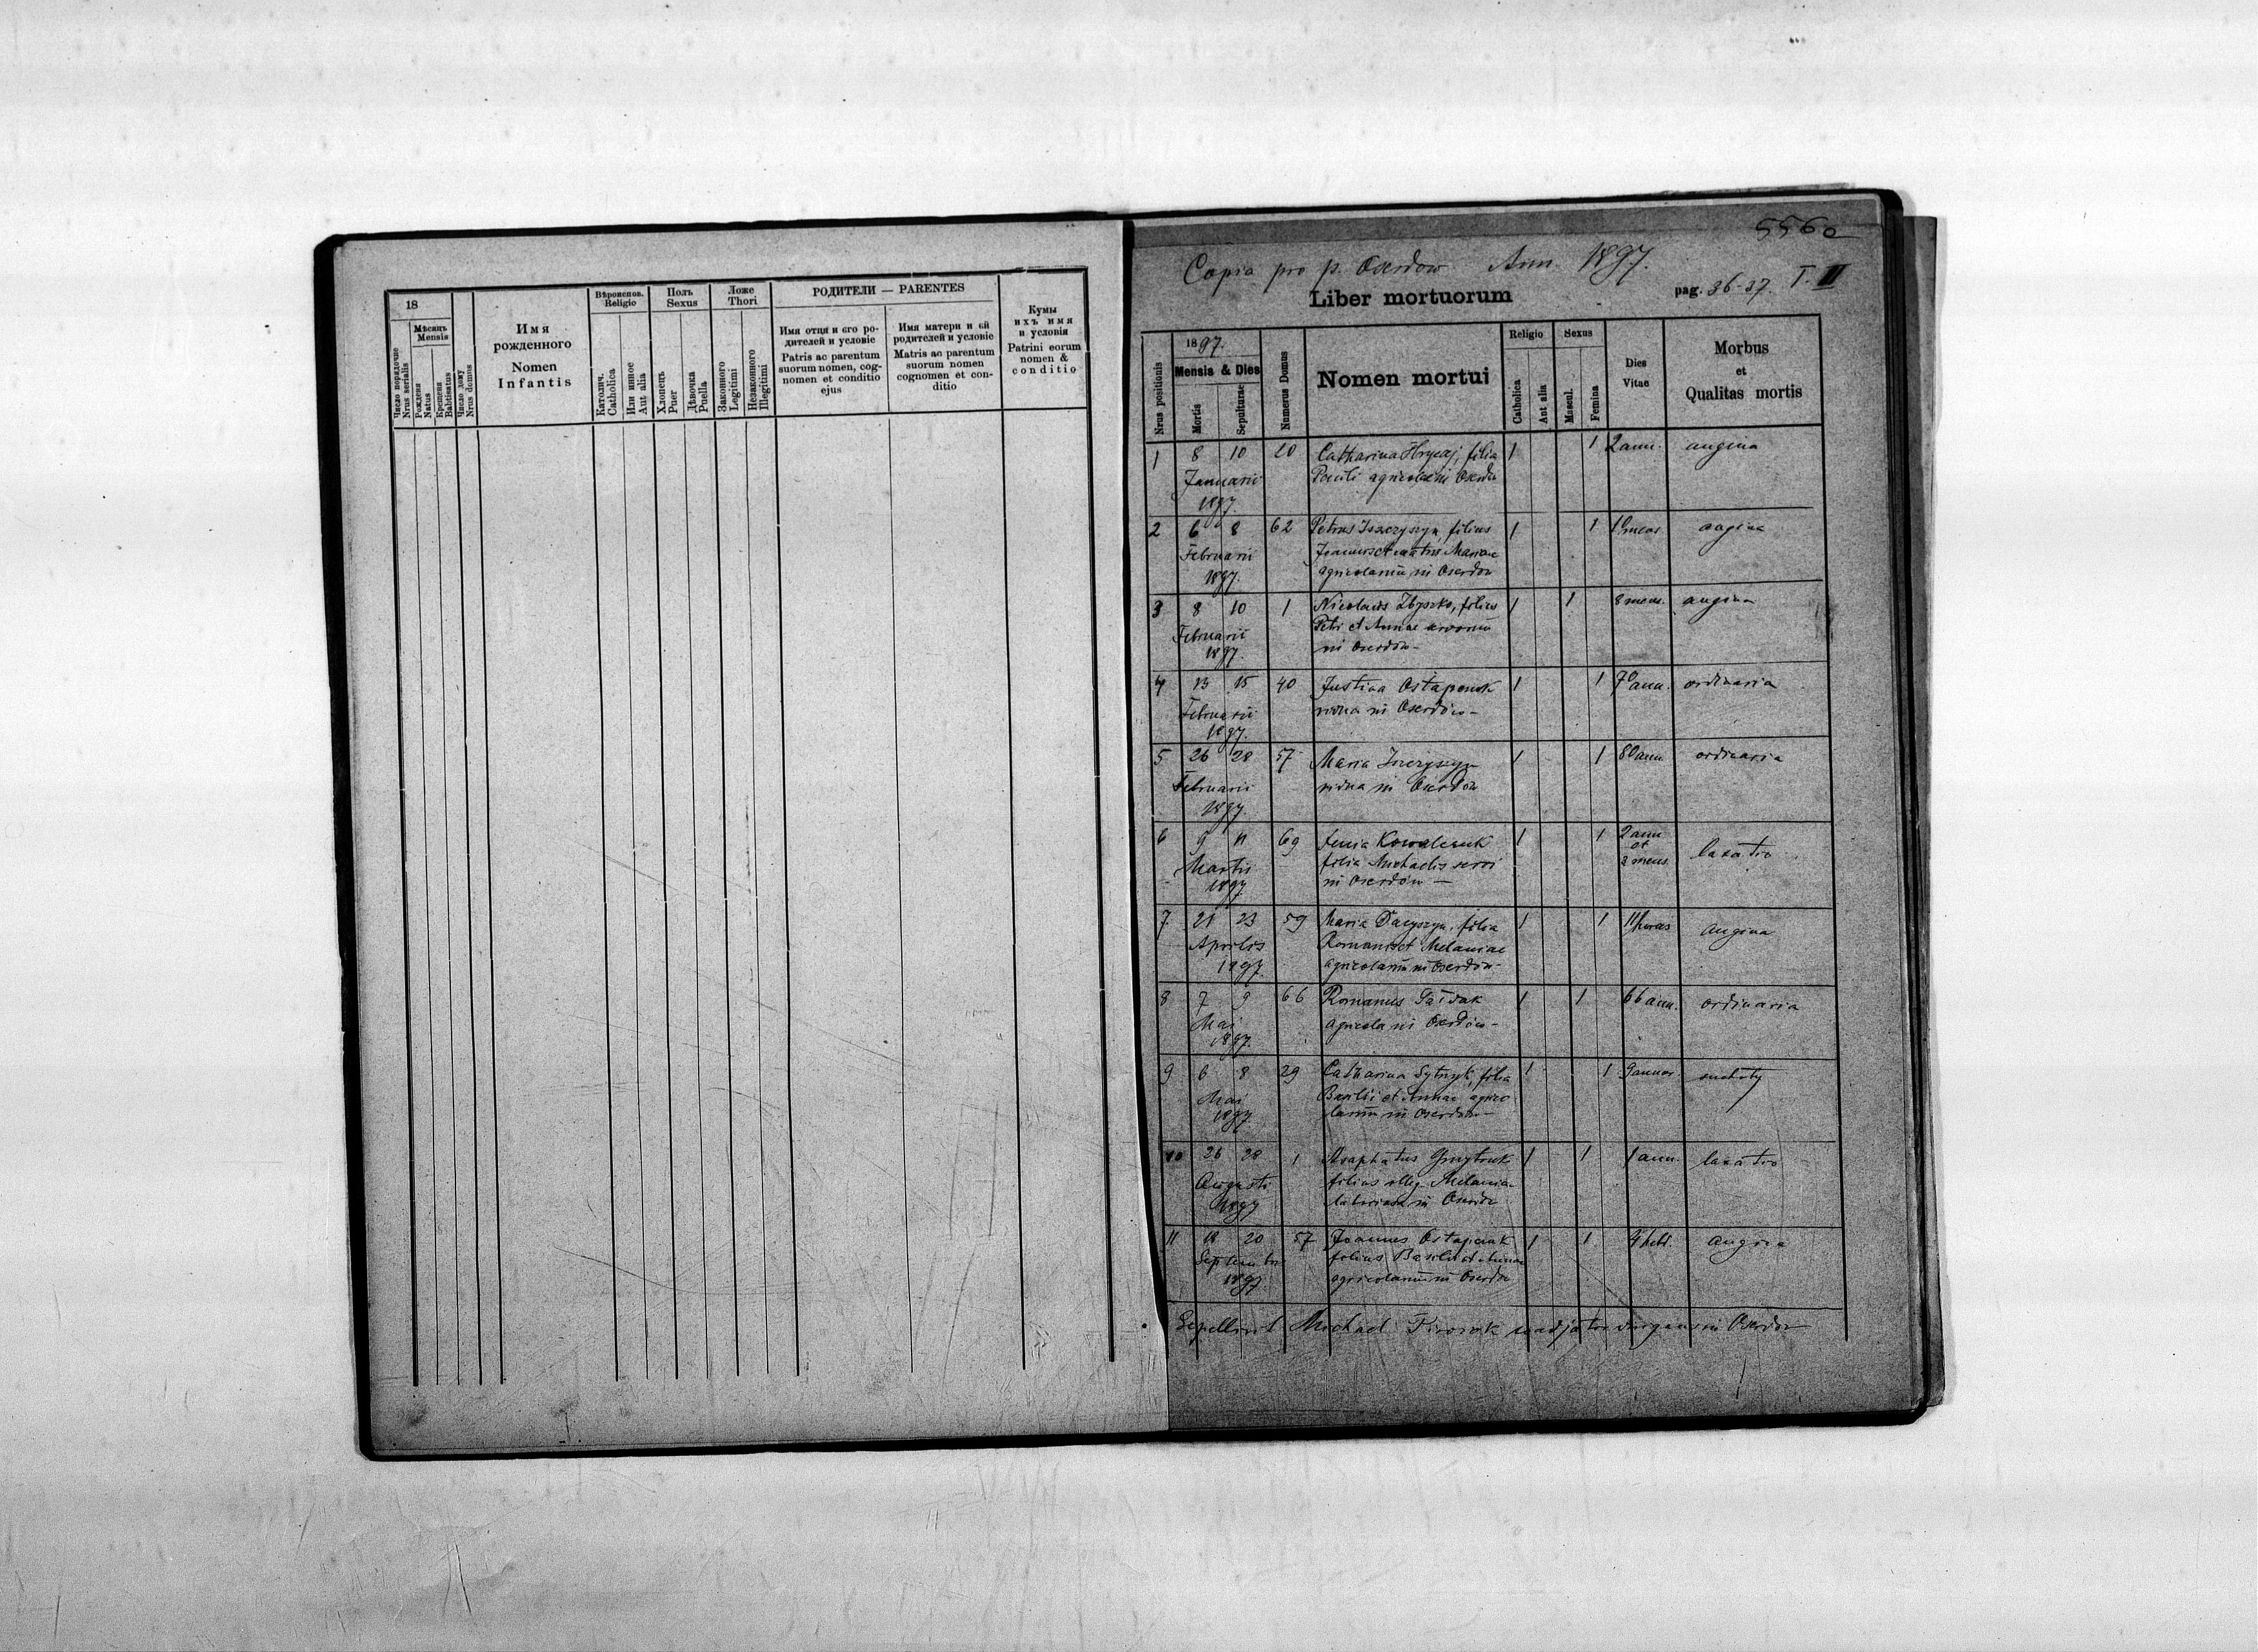 18
Мѣсяць
Mensis
Число порядочне
Nrus serialis
Рождения
Natus
Крещения
Babtisatus
Число дому
Nrus domos
Имя
рожденного
Nomen
Infantis
Вѣроиспов.
Religio
Католич.
Catholica
Или инное
Aut alia
Полъ
Sexus
Хлопець
Puer
Дѣвочка
Puella
Ложе
Thori
Законного
Legitimi
Незаконного
Illegitimi
РОДИТЕЛИ — PARENTES
Имя отця и єго ро-
дителей и условіє
Patris ac parentum
suorum nomen, cog-
nomen et conditio
ejus
Имя матери и єй
родителей и условіє
Matris ac parentum
suorum nomen
cognomen et con-
ditio
Кумы
ихъ имя
и условія
Patrini eorum
nomen &
conditio
5560
Copia pro p. Oserdow Ann. 1897.
Liber mortuorum
pag. 36-37. T. II
Nrus positionis
1897.
Mensis & Dies
Mortis
Sepulturae
Numerus Domus
Nomen mortui
Religio
Catholica
Aut alia
Sexus
Mascul.
Femina
Dies
Vitae
Morbus
et
Qualitas mortis
1 8 10 20 Catharina Hrycaj, filia 1 1 2 ann. angina
Januarii Pauli agricolae in Oserdow
1897.
2 6 8 62 Petrus Iszczyszyn, filius 1 1 angina
Februarii Joannis et Mariae
1897. agricolarum in Oserdow
3 8 10 1 Nicolaus Zbyszko, filius 1 1 8 mens. angina
Februarii Petri et Annae
1897. in Oserdow
4 13 15 40 Justina Ostapczuk 1 1 70 ann. ordinaria
Februarii vidua in Oserdów
1897.
5 26 28 57 Maria Iszczyszyn 1 1 80 ann. ordinaria
Februarii vidua in Oserdow
1897.
6 9 11 69 Kowalczuk 1 1 2 ann
et
2 mens. laxatio
Martii filia Michaelis servi
1897 in Oserdów
7. 21 23 59 Maria Daczyszyn, filia 1 1 angina
Aprilis Romani et Melaniae
1897. agricolarum in Oserdow
8 7 9 66 Romanus 1 1 66 ann. ordinaria
Mai agricola in Oserdów
1897.
9 6 8 29 Catharina Sytnyk, filia 1 1 suchoty
Mai Basilii et Annae agrico
1897. larum in Oserdow
10 26 28 1 1 1 1 ann. laxatio
Augusti filius illeg. Melaniae
1897 in Oserdow
11 18 20 57 Joannes Ostapczuk 1 1 angina
Septembris filius Basilii et Annae
1897. agricolarum in Oserdow
Sepellivit Michael in Oserdow